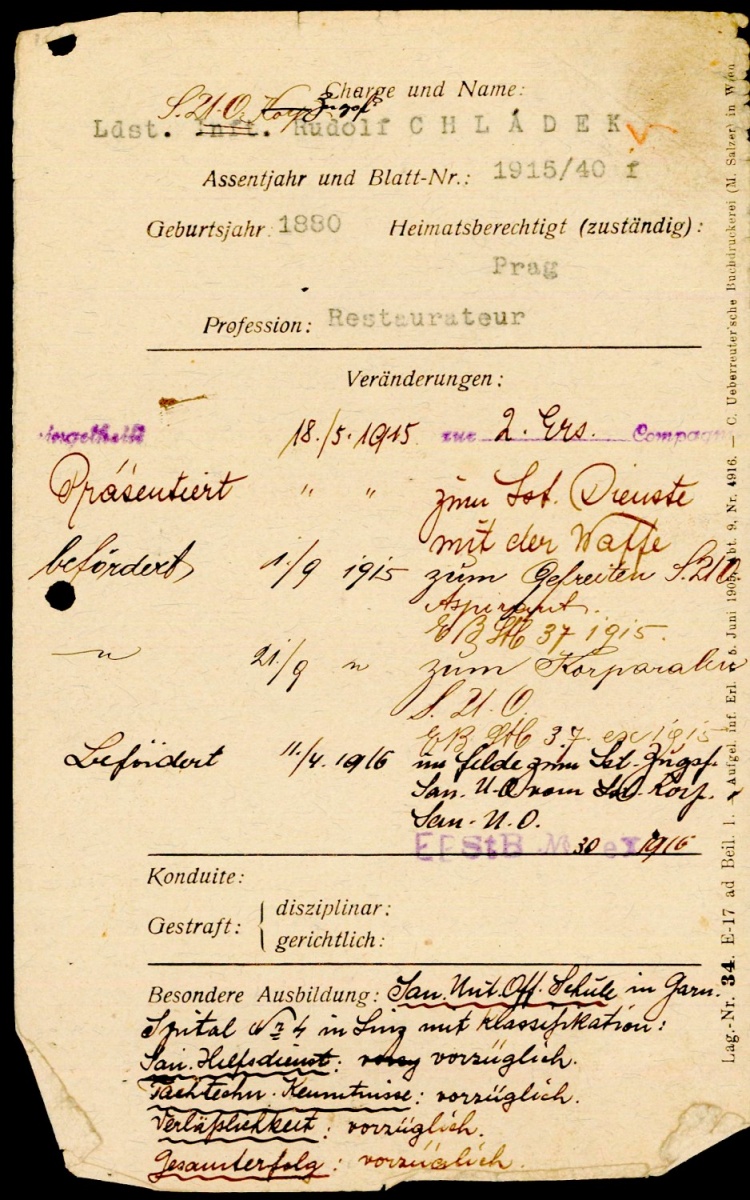 Charge und Name:
S.U.O. Korp. Zugsf.
Ldst. Inft. Rudolf CHLÁDEK
Assentjahr und Blatt-Nr.: 1915/40 f
Geburtsjahr: 1880 Heimatsberechtigt (zuständig):
Prag
Profession: Restaurateur
Veränderungen:
eingeteilt 18./5. 1915 zur 2. Ers. Compagn
Präsentiert " " zum Lst. Dienste
mit der Waffe
befördert 1./9 1915 zum Gefreiten S.U.O.
Aspirant.
37 1915.
" 21/9 " zum Korporalen
S.U.O.
37. ex 1915
Befördert 11./4. 1916 im Felde zum Lst. Zugsf.
San. U.O. vom Lst. Korp.
San. U.O.
30 1916
Konduite:
Gestraft: disziplinar:
gerichtlich:
Besondere Ausbildung: San. Unt. Off. Schule in Garn.
Spital № 4 in Linz mit Klassifikation:
San. Hilfsdienst: vorzüglich.
Fachtechn. Kenntnisse: vorzüglich.
Verläßlichkeit: vorzüglich.
Gesamterfolg: vorzüglich.
Lag.-Nr. 34. E-17 ad Beil. 1. — Aufgel. inf. Erl. 5. Juni 1905, Abt. 9, Nr. 4916. — C. Ueberreuter'sche Buchdruckerei (M. Salzer) in Wien